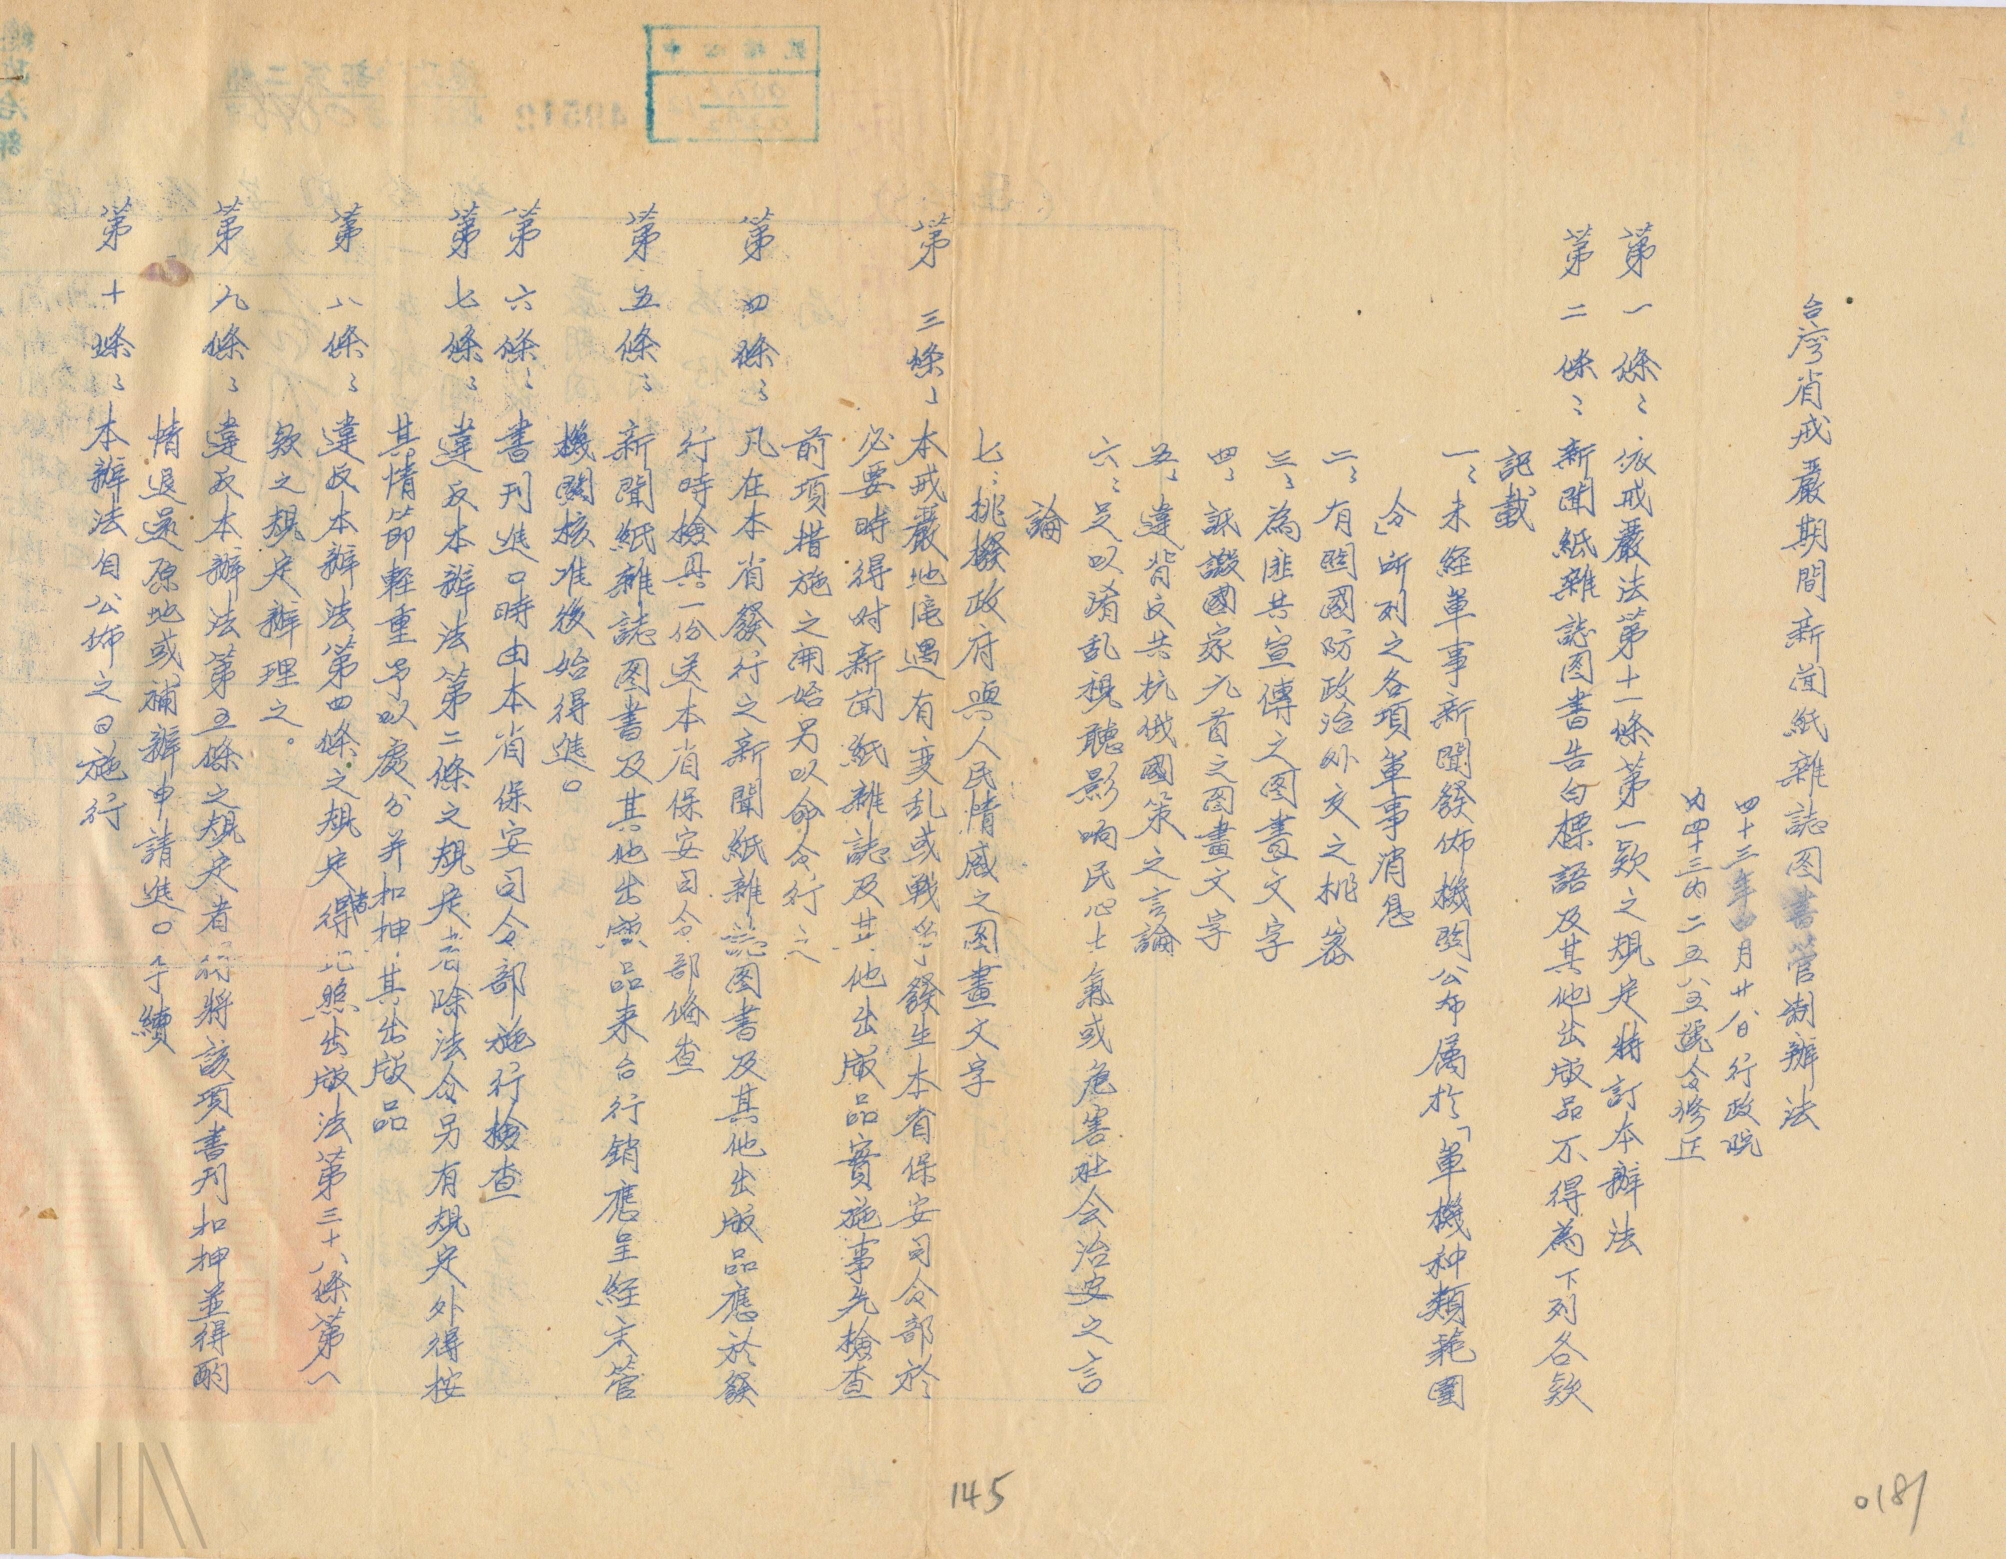 台湾省戒嚴期間新聞紙雜誌图書管制辦法
四十三年四月廿八日行政院
內四十三內二五八五號令修正
第一條：依戒嚴法第十一條第一欵之規定特訂本辦法
第二條：新聞紙雜誌图書告白標語及其他出版品不得為下列各欵
記載
一：未經軍事新聞發佈機関公布属於「軍機种類範圍
令」所列之各項軍事消息
二：有関國防政治外交之机密
三：為匪共宣傳之图畫文字
四：詆譭國家元首之图畫文字
五：違背反共抗俄國策之言論
六：足以淆乱視聽影响民心士氣或危害社会治安之言
論
七：挑撥政府與人民情感之图畫文字
第三條：本戒嚴地區遇有变乱或戰爭發生本省保安司令部於
必要時得对新聞紙雜誌及其他出版品實施事先檢查
前項措施之開始另以命令行之
第四條：凡在本省發行之新聞紙雜誌图書及其他出版品應於發
行時檢具一份送本省保安司令部俻查
第五條：新聞紙雜誌图書及其他出版品来台行銷應呈經主管
機関核准後始得進口
第六條：書刊進口時由本省保安司令部施行檢查
第七條：違反本辦法第二條之規定者除法令另有規定外得按
其情節輕重予以處分并扣押其出版品
第八條：違反本辦法第四條之規定者得比照出版法第三十八條第一
欵之規定辦理之。
第九條：違反本辦法第五條之規定者得將該項書刊扣押並得酌
情退還原地或補辦申請進口手續
第十條：本辦法自公佈之日施行
145
0181